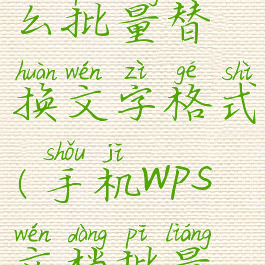 么批量替
huàn wén zì gé shì
换文字格式
shǒu jī
(手机WPS
wén dàng pī liàng
文档批量